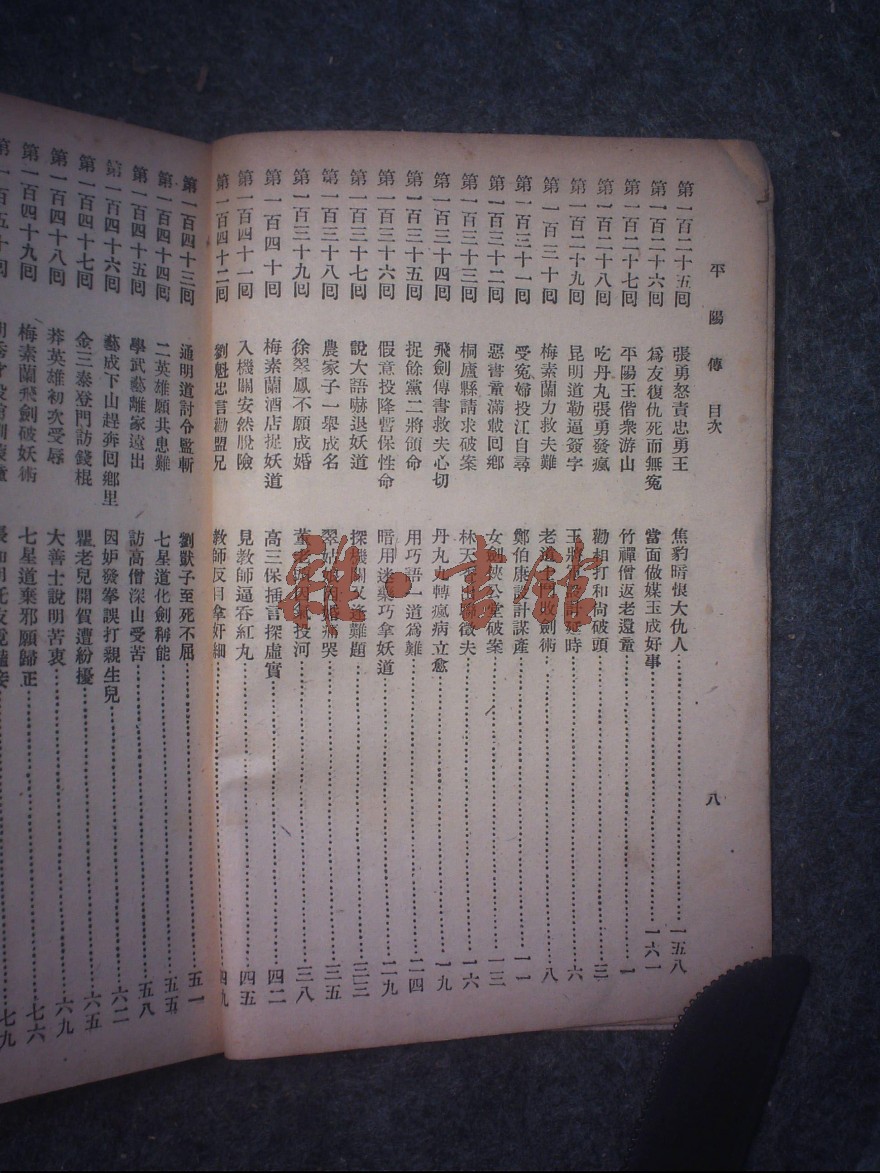 平陽傳　目次
八
第一百二十五回　張勇怒責忠勇王　焦豹暗恨大仇人……一五八
第一百二十六回　爲友復仇死而無冤　當面做媒玉成好事……一六一
第一百二十七回　平陽王偕衆游山　竹禪僧返老還童……一
第一百二十八回　吃丹丸張勇發瘋　勸相打和尙破頭……三
第一百二十九回　昆明道勒逼簽字　王將計延時……六
第一百三十回　梅素蘭力救夫難　老道士門收劍術……八
第一百三十一回　受冤婦投江自尋　鄭伯康設計謀產……一一
第一百三十二回　惡書童滿載回鄉　女劍俠公堂破案……一三
第一百三十三回　桐廬縣請求破案　林天夫……一六
第一百三十四回　飛劍傳書救夫心切　丹丸轉瘋病立愈……一九
第一百三十五回　捉餘黨二將領命　用巧語一道爲難……二四
第一百三十六回　假意投降暫保性命　暗用迷藥巧拿妖道……二九
第一百三十七回　說大語嚇退妖道　探機關又逢難題……三三
第一百三十八回　農家子一舉成名　翠姑娘因婚痛哭……三五
第一百三十九回　徐翠鳳不願成婚　董老投河……三八
第一百四十回　梅素蘭酒店捉妖道　高三保插言探虛實……四二
第一百四十一回　入機關安然脫險　見教師逼吞紅丸……四五
第一百四十二回　劉魁忠言勸盟兄　教師反目拿奸細……四九
第一百四十三回　通明道討令監斬　劉獃子至死不屈……五一
第一百四十四回　二英雄願共患難　七星道化劍稱能……五五
第一百四十五回　學武藝離家遠出　訪高僧深山受苦……五八
第一百四十六回　藝成下山趕奔回鄉里　因妒發拳誤打親生兒……六二
第一百四十七回　金三泰登門訪錢棍　瞿老兒開賀遭紛擾……六五
第一百四十八回　莽英雄初次受辱　大善士說明苦衷……六九
第一百四十九回　梅素蘭飛劍破妖術　七星道棄邪願歸正……七六
第一百五十回……七九
雜·書館